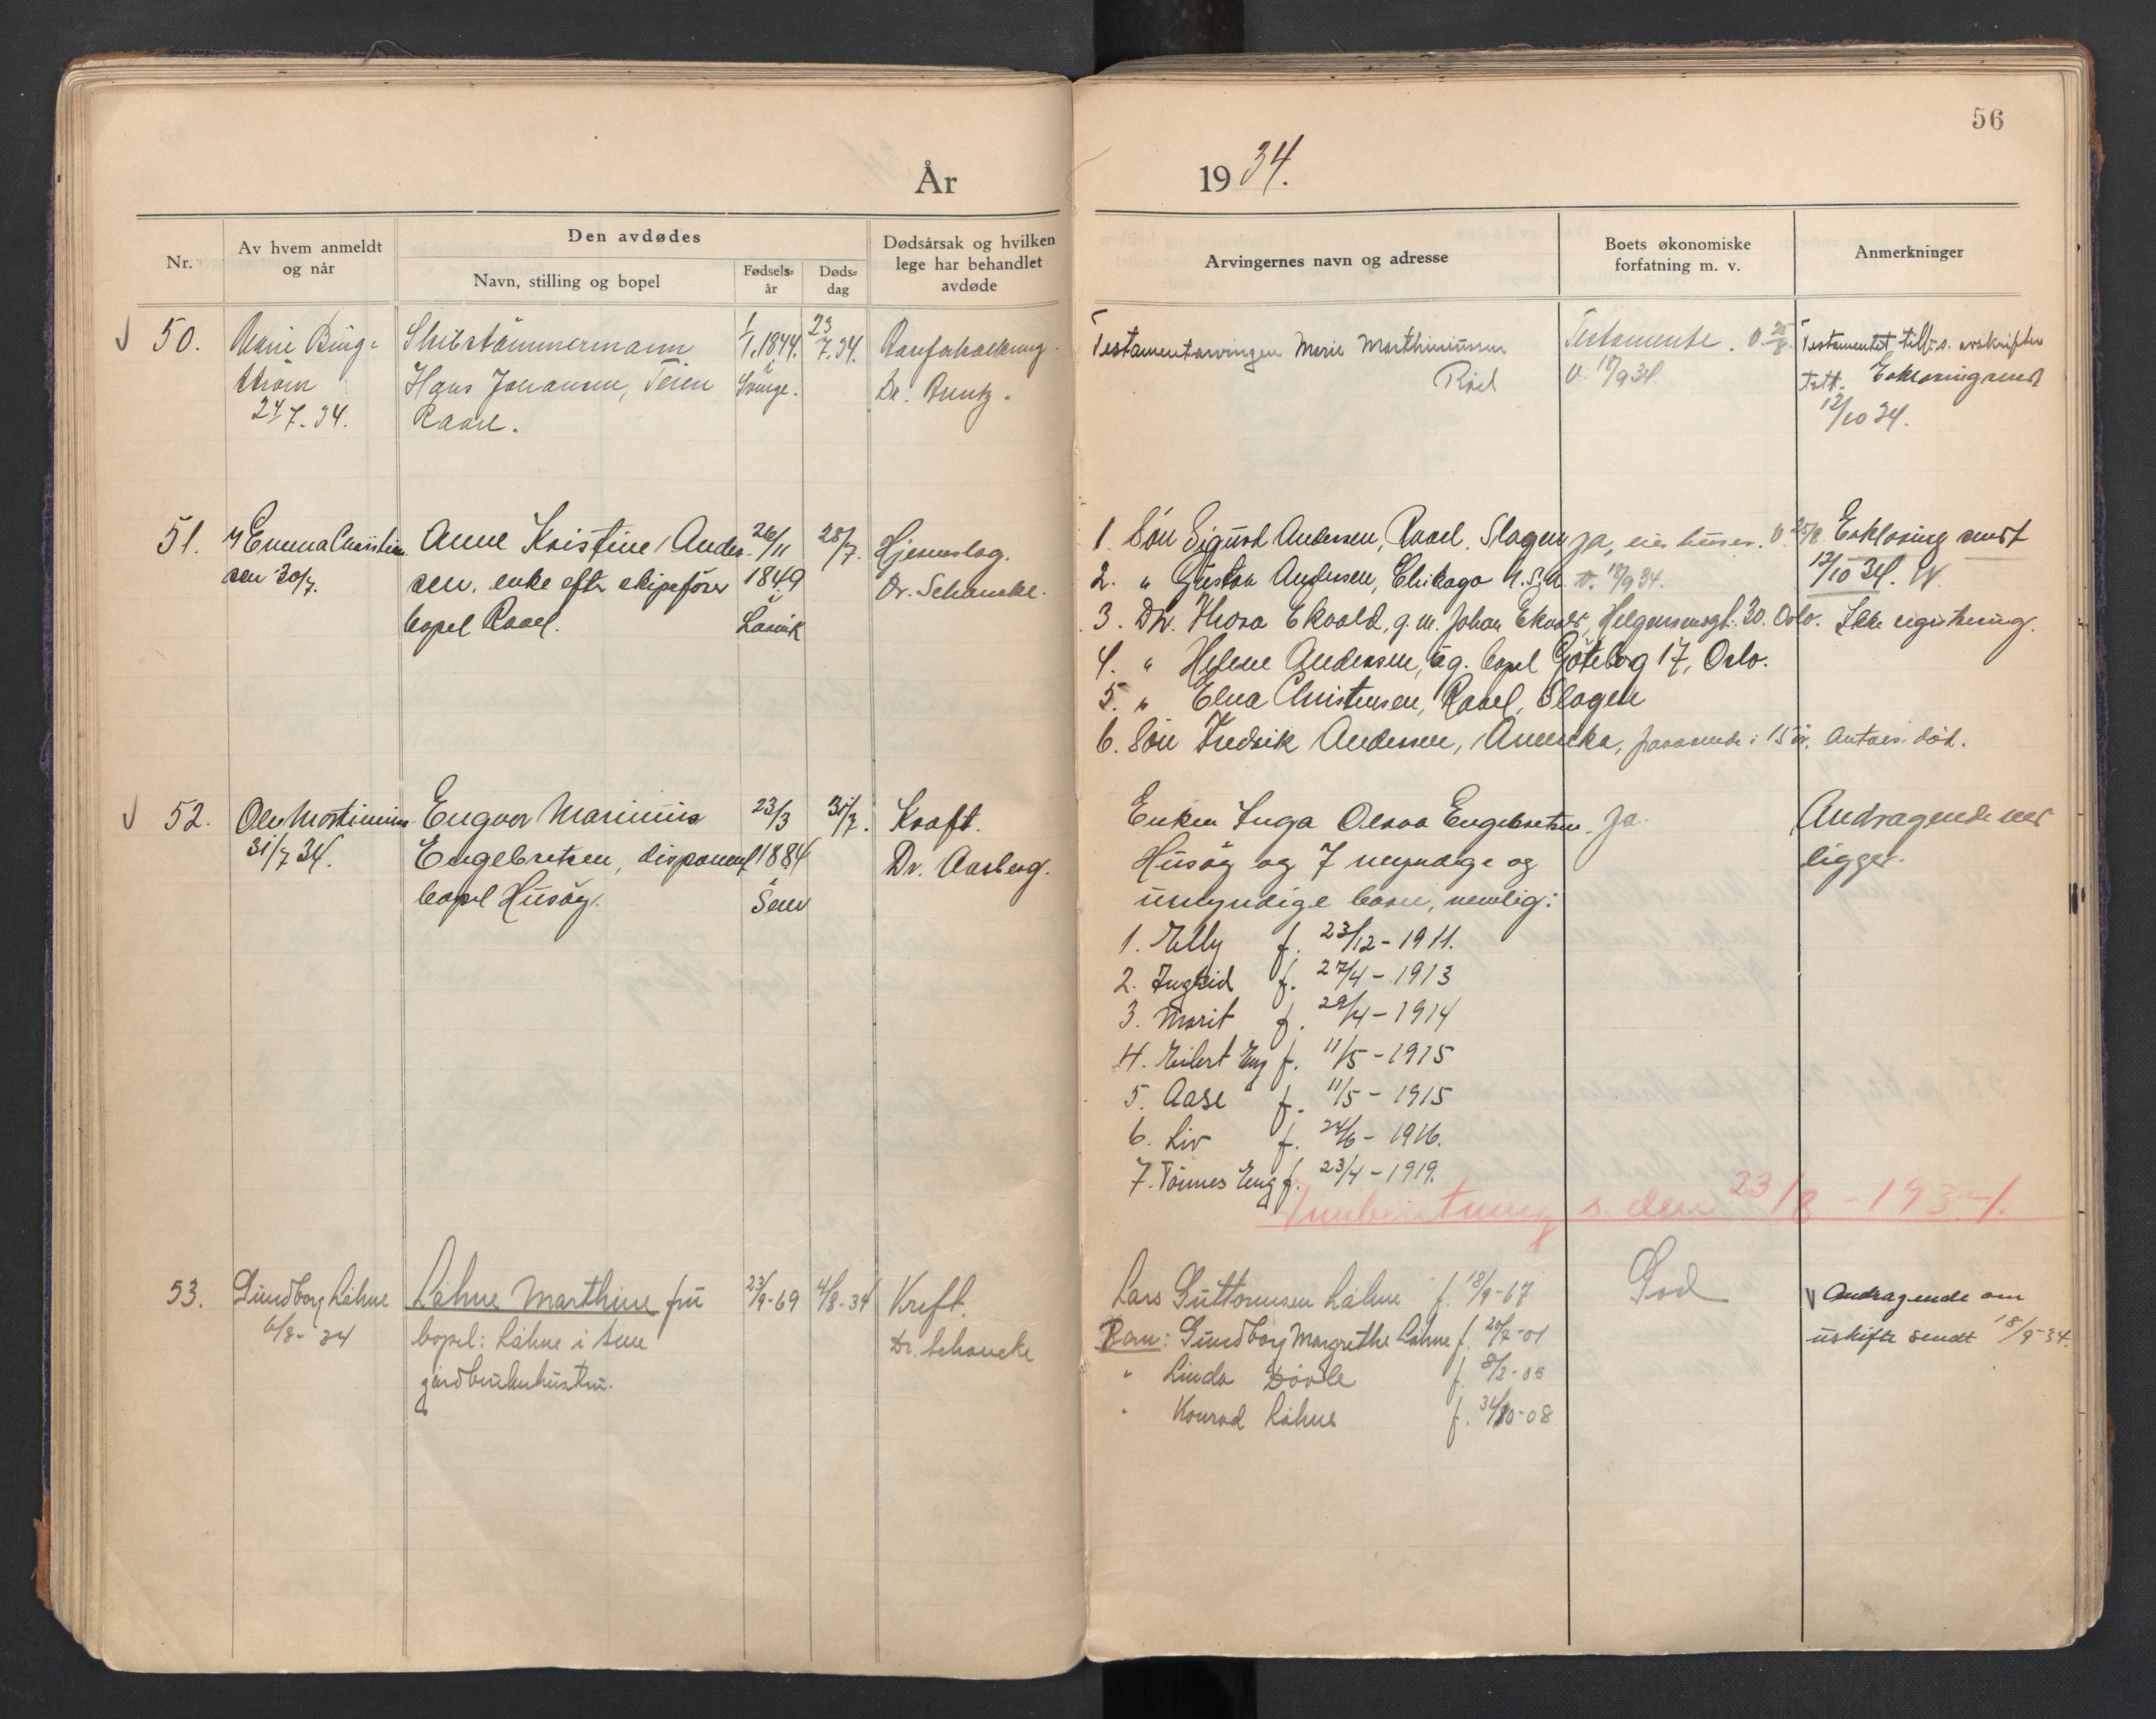 56
År 1934.
Nr.
Av hvem anmeldt
og når
Den avdødes
Navn, stilling og bopel
Fødsels-
år
Døds-
dag
Dødsårsak og hvilken
lege har behandlet
avdøde
Arvingernes navn og adresse
Boets økonomiske
forfatning m. v.
Anmerkninger
50.
Marie
24/7.34.
Skibstømmermann
Hans Johansen, Teien
Råel.
1/1.1844.
i
Sverige.
23
7.34.
Åreforkalkning.
Dr. Buntz.
Testamentarvingen Marie Marthiniussen
Råel
Testamente.
17/9 34.
Testamentet avskrifter
tatt. Erklæring sendt
12/10 34.
51.
Emma Christen
sen 30/7.
Anne Kristine Ander-
sen, enke efter skipsfører
bopel Råel.
26/11
1849
i
Larvik
28/7.
Hjerneslag.
Dr. Schancke.
1. Søn Sigurd Andersen, Råel, Slagen
ja, eier huset.
2. " Gustav Andersen, Chikago U.S.A.
17/9 34.
3. Dtr. Thora Ekvold, g.m. Johan Ekvold, Helgesensgt. 30. Oslo.
4. " Helene Andersen, ug. bopel Göteborg 17, Oslo.
5. " Elna Christensen, Råel, Slagen
6. Søn Fredrik Andersen, Amerika, fraværende i 15 år. Antas død.
25/8 Erklæring sendt
12/10 34.
Ikke registrering.
52.
Olav Martinius
31/7 34.
Engvor Marinius
Engebretsen, disponent
bopel Husøy.
23/3
1884
i
Sem
31/7.
Kraft.
Dr. Aasberg.
Enken Inga Olava Engebretsen
Husøy og 7 myndige og
umyndige barn, nemlig:
1. Elly f. 23/12 - 1911.
2. Ingrid f. 27/4 - 1913
3. Marit f. 29/4 - 1914
4. Eilert Eng f. 11/5 - 1915
5. Aase f. 11/5 - 1915
6. Liv f. 24/6 - 1916.
7. Tønnes Eng f. 23/4 - 1919.
Ja.
Andragende ved
ligger.
Innberetning s. den 23/8 - 1934.
53.
Gundborg Låhne
6/8 - 34
Låhne Marthine fru
bopel: Låhne i Sem
gårdbrukerhustru.
23/9-69
4/8-34
Kreft.
Dr. Schancke
Lars Guttormsen Låhne f. 18/9-67
Barn: Gundborg Margrethe Låhne f. 20/7-01
" Linda Bøvle f. 8/2-05
" Konrad Låhne f. 31/10-08
God
Andragende om
uskifte sendt 18/9-34.